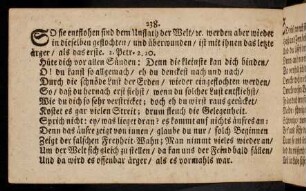 238.
SO sie entflohen sind dem Unflath der Welt/ ꝛc. werden aber wieder
in dieselben geflochten/ und überwunden/ ist mit ihnen das letzte
ärger/ als das erste. 2. Petr. 2, 20.
Hüte dich vor allen Sünden; Denn die kleinste kan dich binden/
O! du kanst so allgemach/ eh du denckest nach und nach/
Durch die schnöde Lust der Erden/ wieder eingeflochten werden/
So/ daß du hernach erst siehst/ wenn du solcher Lust entfliehst/
Wie du dich so sehr verstricket; doch eh du wirst raus gerücket/
Kostet es gar vielen Streit: drum fleuch die Gelegenheit.
Sprich nicht: ey/ was liegt dran? es kommt auf nichts äusres an:
Denn das äusre zeigt von innen/ glaube du nur/ solch Beginnen
Zeigt der falschen Freyheit Wahn; Man nimmt vieles wieder an/
Um der Welt sich gleich zu stellen/ da kan uns der Feind bald fällen/
Und da wird es offenbar ärger/ als es vormahls war.